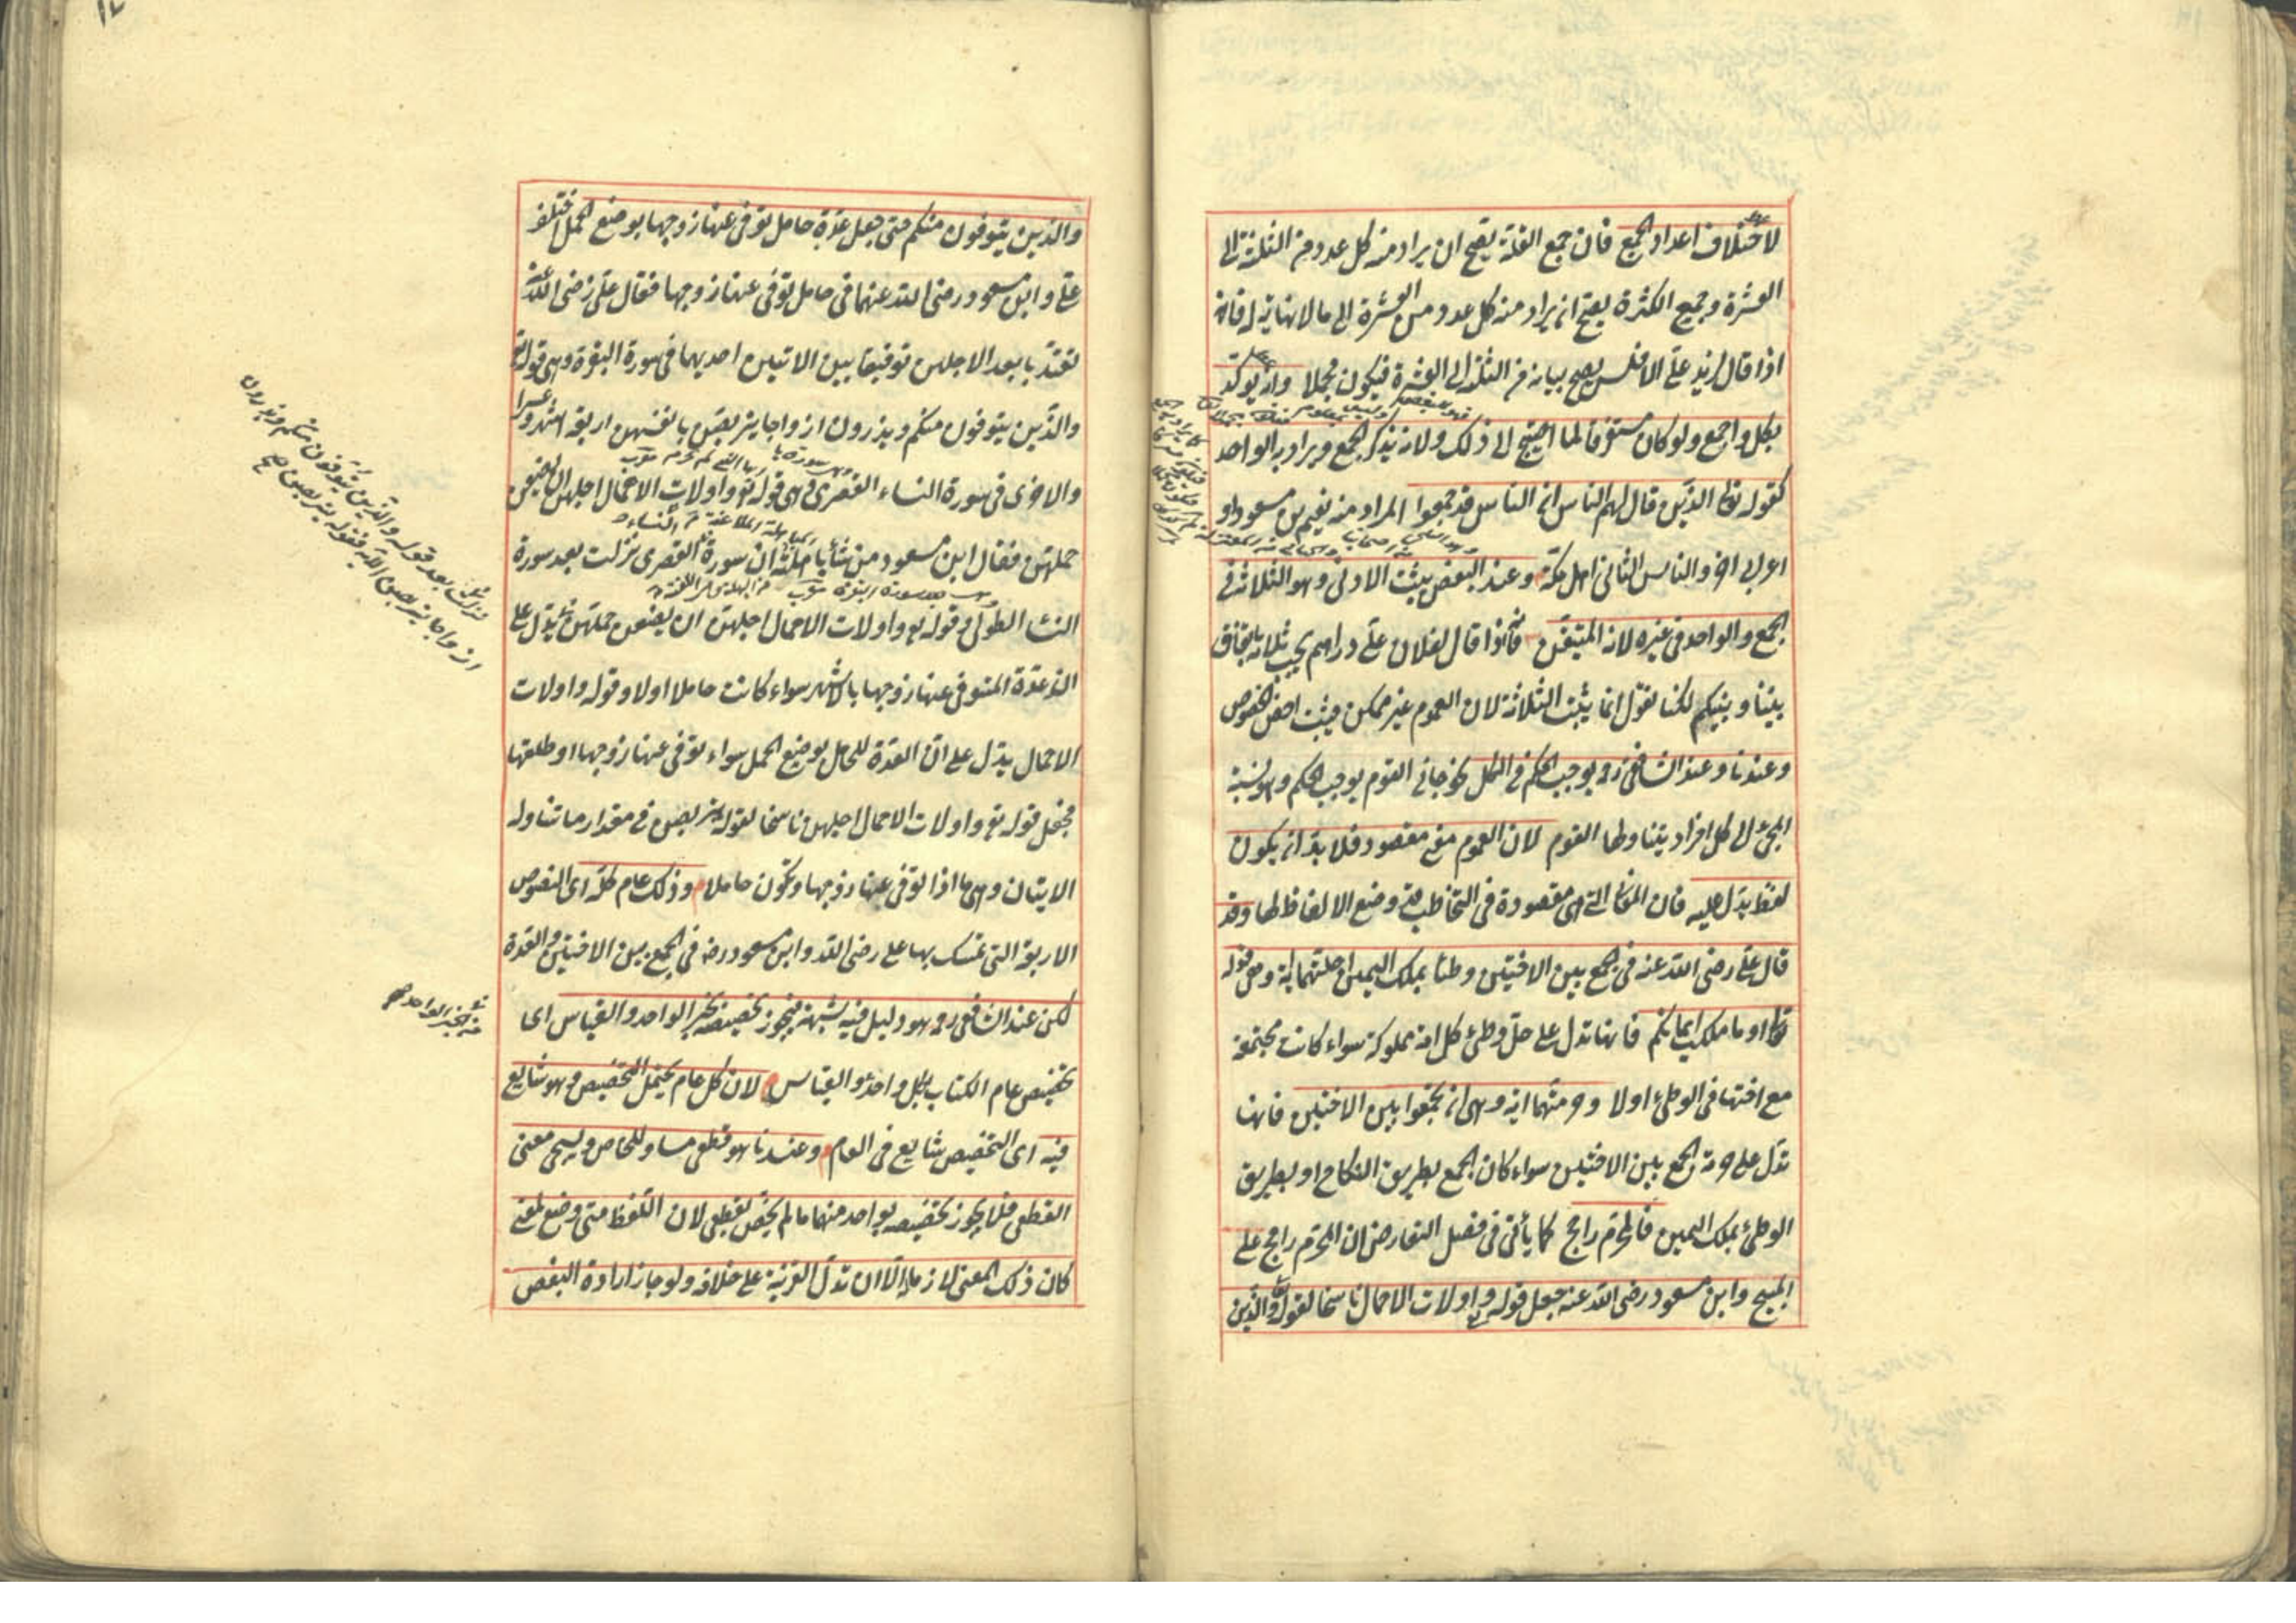 لاختلاف اعداد الجمع فان جمع القلة يصح ان يراد منه كل عدد من الثلثة الى
العشرة وجمع الكثرة يصح ان يراد منه كل عدد من العشرة الى ما لا نهاية له فانه
اذا قال لزيد على الافلس يصح بيانه من الثلثة الى العشرة فيكون مجملا وانه يؤكد
بكل واجمع ولو كان مستغرقا لما احتيج الى ذلك ولانه يذكر الجمع ويراد به الواحد
كقوله تعا الذين قال لهم الناس ان الناس قد جمعوا المراد منه نعيم بن مسعود او
اعرابى اخر والناس الثانى اهل مكة وعند البعض يثبت الادنى وهو الثلاثة فى
الجمع والواحد فى غيره لانه المتيقن فانه اذا قال لفلان على دراهم يجب ثلاثة باتفاق
بيننا وبينكم لكنا نقول انما يثبت الثلاثة لان العموم غير ممكن فيثبت اخص الخصوص
وعندنا وعند الشافعى رح يوجب الحكم فى الكل نحو جائنى القوم يوجب الحكم وهو نسبة
المجئ الى كل افراد يتناولها القوم لان العموم معنى مقصود فلا بد ان يكون
لفظ يدل عليه فان المعانى التى هى مقصودة فى التخاطب قد وضع الالفاظ لها وقد
قال على رضى الله عنه فى جمع بين الاختين وطئا بملك اليمين احلتهما اية وهى قوله
تعا او ما ملكت ايمانكم فانها تدل على حل وطئ كل امة مملوكة سواء كانت مجتمعة
مع اختها فى الوطئ اولا وحرمتهما اية وهى ان تجمعوا بين الاختين فانها
تدل على حرمة الجمع بين الاختين سواء كان الجمع بطريق النكاح او بطريق
الوطئ بملك اليمين فالمحرم راجح كما يأتى فى فصل التعارض ان المحرم راجح على
المبيح وابن مسعود رضى الله عنه جعل قوله واولات الاحمال ناسخا لقوله والذين
والذين يتوفون منكم حتى جعل عدة حامل توفى عنها زوجها بوضع الحمل اختلف
على وابن مسعود رضى الله عنهما فى حامل توفى عنها زوجها فقال على رضى الله عنه
تعتد بابعد الاجلين توفيقا بين الايتين احديهما فى سورة البقرة وهى قوله تع
والذين يتوفون منكم ويذرون ازواجا يتربصن بانفسهن اربعة اشهر وعشرا
والاخرى فى سورة النساء القصرى وهى قوله تع واولات الاحمال اجلهن ان يضعن
حملهن فقال ابن مسعود من شاء باهلته ان سورة القصرى نزلت بعد سورة
النساء الطولى وقوله تع واولات الاحمال اجلهن ان يضعن حملهن يدل على
ان عدة المتوفى عنها زوجها بالاشهر سواء كانت حاملا اولا وقوله واولات
الاحمال يدل على ان العدة للحامل بوضع الحمل سواء توفى عنها زوجها او طلقها
فجعل قوله تع واولات الاحمال اجلهن ناسخا لقوله يتربصن فى مقدار ما تناوله
الايتان وهى ما اذا توفى عنها زوجها وتكون حاملا وذلك عام كله اى النصوص
الاربعة التى تمسك بها على رضى الله وابن مسعود رضه فى الجمع بين الاختين والعدة
لكن عند الشافعى رح هو دليل فيه شبهة فيجوز تخصيصه بخبر الواحد والقياس اى
تخصيص عام الكتاب بكل واحد والقياس لان كل عام يحتمل التخصيص وهو شايع
فيه اى التخصيص شايع فى العام وعندنا هو قطعى مساو للخاص وسيجى معنى
القطعى فلا يجوز تخصيصه بواحد منهما ما لم يخص بقطعى لان اللفظ متى وضع لمعنى
كان ذلك المعنى لازما له الا ان تدل القرينة على خلافه ولو جاز ارادة البعض
نزلت بعد قوله والذين يتوفون منكم ويذرون
ازواجا يتربصن الآية فقوله يتربصن
من خبر الواحد